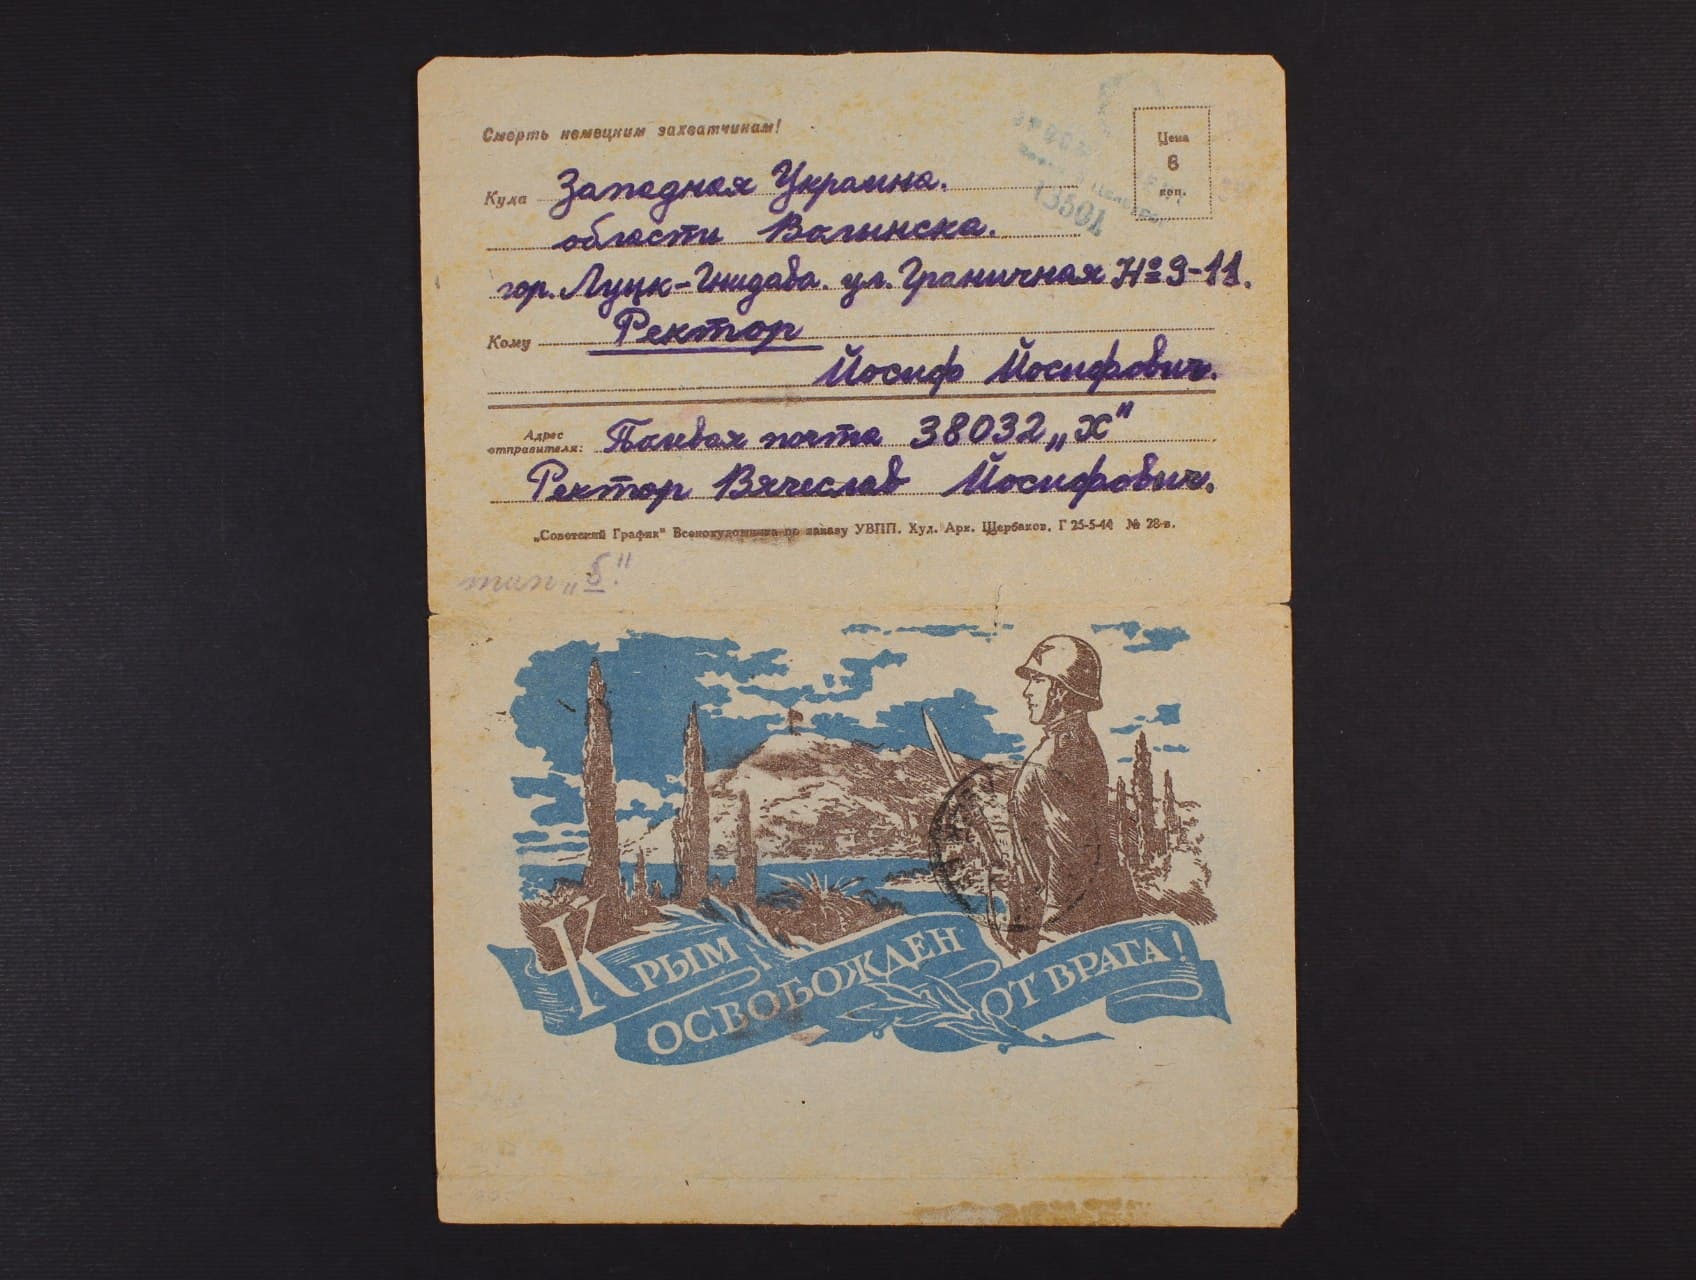 Смерть немецким захватчикам!
Цена
6
коп.
13501
Куда Западная Украина.
области Волынска.
гор. Луцк-Гнидава. ул. Граничная № 9-11.
Кому Ректор
Йосиф Йосифович.
Адрес отправителя: Полевая почта 38032 „Х"
Ректор Вячеслав Йосифович.
„Советский График" Всекохудожника по заказу УВПП. Худ. Арк. Щербаков. Г 25-5-44 № 28-в.
КРЫМ
ОСВОБОЖДЕН
ОТ ВРАГА!